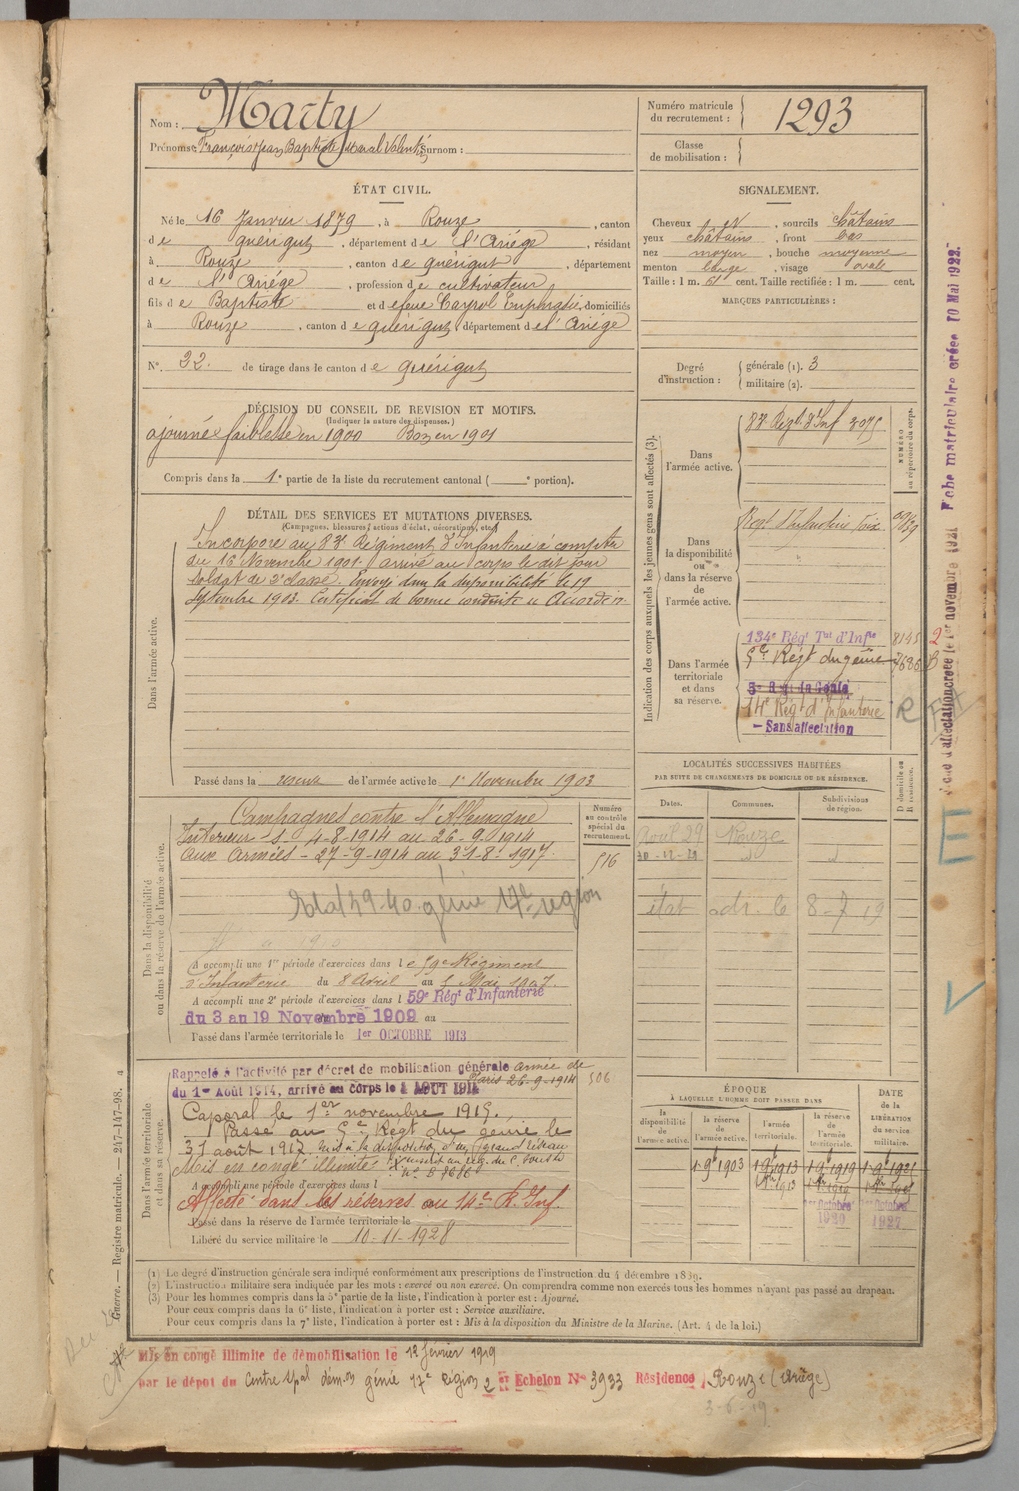 Nom : Marty
Prénoms : François Jean Baptiste Marcel Valentin Surnom :
Numéro matricule du recrutement : 1293
Classe de mobilisation :
ÉTAT CIVIL.
Né le 16 Janvier 1879, à Rouze, canton
de Quérigut, département de l'Ariège, résidant
à Rouze, canton de Quérigut, département
de l'Ariège, profession de cultivateur
fils de Baptiste et de feue Cayrol Euphrasie, domiciliés
à Rouze, canton de Quérigut, département de l'Ariège
N° 22. de tirage dans le canton de Quérigut
SIGNALEMENT.
Cheveux N, sourcils châtains
yeux châtains, front bas
nez moyen, bouche moyenne
menton large, visage ovale
Taille : 1 m. 61 cent. Taille rectifiée : 1 m. cent.
MARQUES PARTICULIÈRES :
Degré d'instruction : générale (1). 3
militaire (2).
DÉCISION DU CONSEIL DE REVISION ET MOTIFS.
(Indiquer la nature des dispenses.)
ajourné faiblesse en 1900 Bon en 1901
Compris dans la 1e partie de la liste du recrutement cantonal ( e portion).
DÉTAIL DES SERVICES ET MUTATIONS DIVERSES.
(Campagnes, blessures, actions d'éclat, décorations, etc.)
Dans l'armée active.
Incorporé au 83e Régiment d'Infanterie à compter
du 16 Novembre 1901. arrivé au corps le dit jour
soldat de 2e classe. Envoyé dans la disponibilité le 19
septembre 1903. Certificat de bonne conduite "Accordé".
Passé dans la réserve de l'armée active le 1er Novembre 1903
Indication des corps auxquels les jeunes gens sont affectés (3).
NUMÉRO au répertoire du corps.
Dans l'armée active.
83e Régt d'Inf 3075
Dans la disponibilité ou dans la réserve de l'armée active.
Régt d'Infanterie Foix
Dans l'armée territoriale et dans sa réserve.
134e Régt Tal d'Infie 8145
5e Régt du génie 7686
5e Régt du Génie
14e Régt d'Infanterie
- Sans affectation
LOCALITÉS SUCCESSIVES HABITÉES
PAR SUITE DE CHANGEMENTS DE DOMICILE OU DE RÉSIDENCE.
Dates. Communes. Subdivisions de région. D domicile ou R résidence.
Rouze
30-12-29
état 8-7 19
Dans la disponibilité ou dans la réserve de l'armée active.
Numéro au contrôle spécial du recrutement.
Campagnes contre l'Allemagne
Intérieur S. 4-8-1914 au 26-9-1914
Aux Armées - 27-9-1914 au 31-8-1917
516
génie 17e région
A accompli une 1re période d'exercices dans le 59e Régiment
d'Infanterie du 8 Avril au 5 Mai 1907.
A accompli une 2e période d'exercices dans l 59e Régt d'Infanterie
du 3 au 19 Novembre 1909 au
Passé dans l'armée territoriale le 1er OCTOBRE 1913
Dans l'armée territoriale et dans sa réserve.
Rappelé à l'activité par décret de mobilisation générale armée de
du 1er Août 1914, arrivé au corps le 4 AOUT 1914 Paris 26-9-1914 506
Caporal le 1er novembre 1915.
Passé au 5e Régt du génie le
31 août 1917. Mis à la disposition d'un grand réseau
Mis en congé illimité
n° B 7686
A accompli une période d'exercices dans l
Affecté dans les réserves au 14e R. Inf.
Passé dans la réserve de l'armée territoriale le
Libéré du service militaire le 10-11-1928
ÉPOQUE
À LAQUELLE L'HOMME DOIT PASSER DANS
la disponibilité de l'armée active. la réserve de l'armée active. l'armée territoriale. la réserve de l'armée territoriale.
DATE de la LIBÉRATION du service militaire.
1 9bre 1903 1 9bre 1913 1 9bre 1919 1 9bre 1925
1er Octobre 1920 1er Octobre 1927
(1) Le degré d'instruction générale sera indiqué conformément aux prescriptions de l'instruction du 4 décembre 1889.
(2) L'instruction militaire sera indiquée par les mots : exercé ou non exercé. On comprendra comme non exercés tous les hommes n'ayant pas passé au drapeau.
(3) Pour les hommes compris dans la 5e partie de la liste, l'indication à porter est : Ajourné.
Pour ceux compris dans la 6e liste, l'indication à porter est : Service auxiliaire.
Pour ceux compris dans la 7e liste, l'indication à porter est : Mis à la disposition du Ministre de la Marine. (Art. 4 de la loi.)
Mis en congé illimité de démobilisation le 12 février 1919
par le dépôt du Centre spal démon génie 17e région 2e Echelon No 3933 Résidence Rouze (Ariège)
3-6-19
Guerre. — Registre matricule. — 247-147-98.
Fiche d'affectation créée le 1er novembre 1921 Fiche matriculaire créée 10 Mai 1922.
E